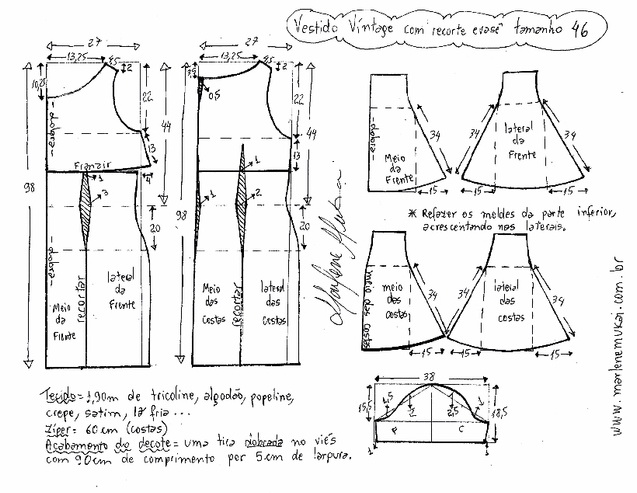 Vestido Vintage com recorte evasê tamanho 46
27
13,25
2
10,25
22
44
98
dobra
13
Franzir
4
1
3
20
dobra
Meio da Frente
recortar
lateral da Frente
27
13,25
2
0,5
22
44
98
13
1
2
20
Meio das Costas
recortar
lateral das Costas
dobra
Meio da Frente
34
15
34
lateral da Frente
34
15
* Refazer os moldes da parte inferior,
acrescentando nas laterais.
meio das costas
meio das costas
34
15
34
lateral das costas
34
15
38
15,5
1,5
2,5
18,5
F
C
1
1
Tecido= 1,90m de tricoline, algodão, popeline,
crepe, satim, lã fria ...
Zíper= 60cm (costas)
Acabamento do decote= uma tira dobrada no viés
com 90cm de comprimento por 5cm de largura.
Marlene Mukai
www.marlenemukai.com.br